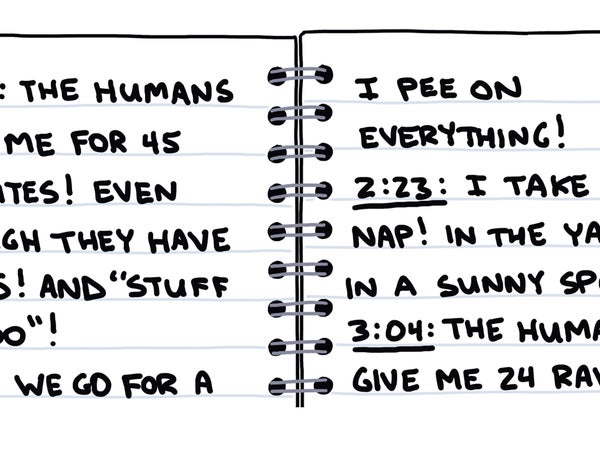 : THE HUMANS
ME FOR 45
TES! EVEN
GH THEY HAVE
S! AND "STUFF
DO"!
WE GO FOR A
I PEE ON
EVERYTHING!
2:23: I TAKE
NAP! IN THE YA
IN A SUNNY SP
3:04: THE HUMA
GIVE ME 24 RAV